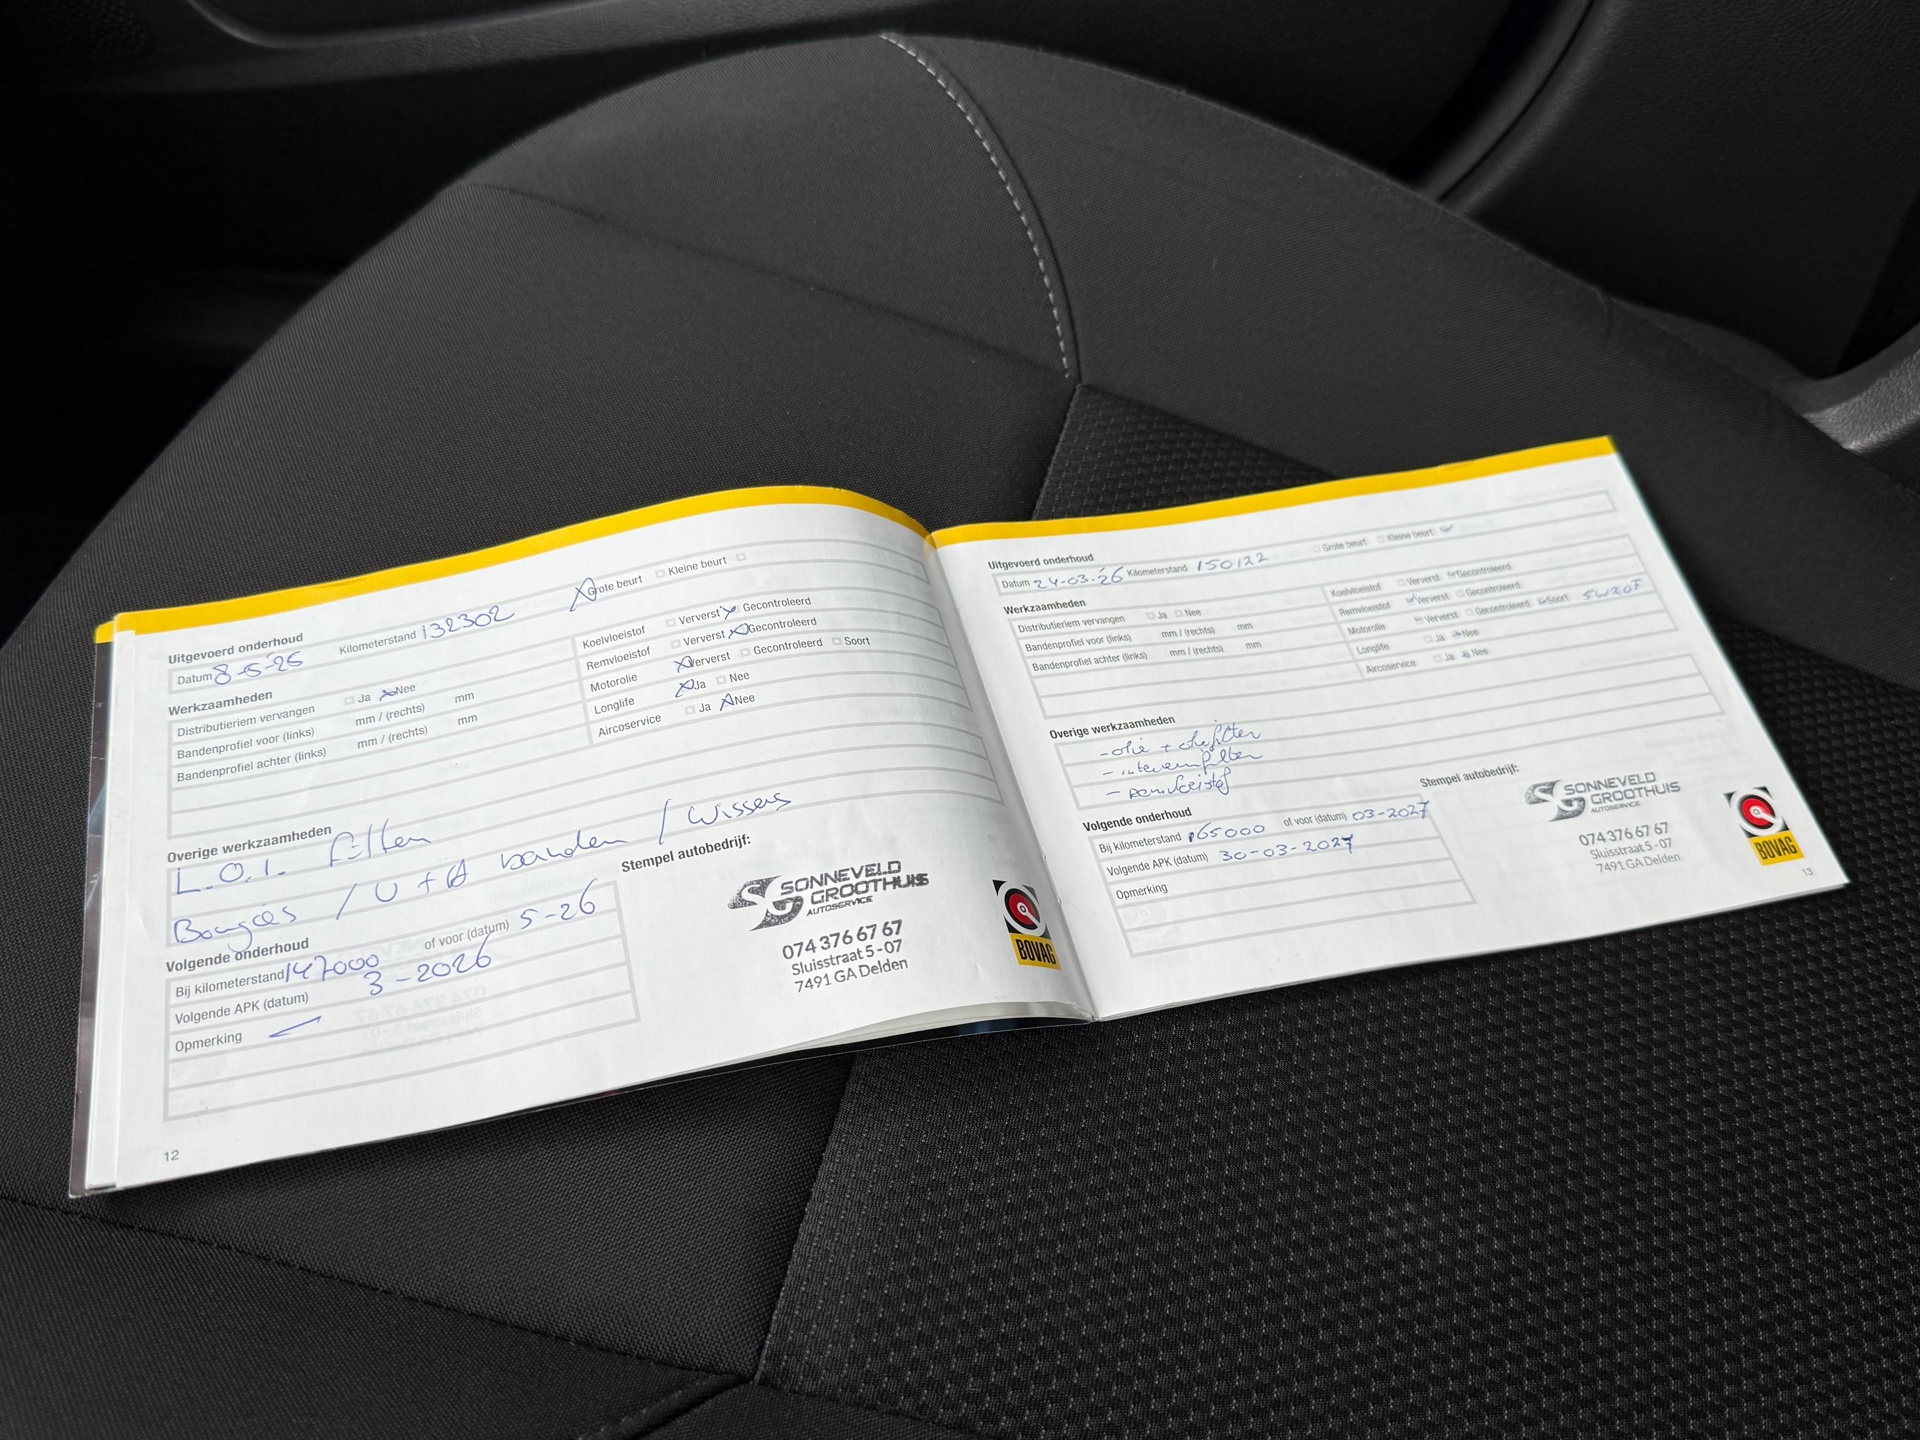 Uitgevoerd onderhoud
Datum 8-5-25 Kilometerstand 132302 Grote beurt Kleine beurt
Werkzaamheden
Distributieriem vervangen Ja Nee
Bandenprofiel voor (links) mm / (rechts) mm
Bandenprofiel achter (links) mm / (rechts) mm
Koelvloeistof Ververst Gecontroleerd
Remvloeistof Ververst Gecontroleerd
Motorolie Ververst Gecontroleerd Soort
Longlife Ja Nee
Aircoservice Ja Nee
Overige werkzaamheden
L.O.I. filter
Bougies / V + A banden / Wissers
Volgende onderhoud
Bij kilometerstand 147000 of voor (datum) 5-26
Volgende APK (datum) 3-2026
Opmerking
Stempel autobedrijf:
SONNEVELD
GROOTHUIS
AUTOSERVICE
074 376 67 67
Sluisstraat 5-07
7491 GA Delden
BOVAG
12
Uitgevoerd onderhoud
Datum 24-03-26 Kilometerstand 150122 Grote beurt Kleine beurt
Werkzaamheden
Distributieriem vervangen Ja Nee
Bandenprofiel voor (links) mm / (rechts) mm
Bandenprofiel achter (links) mm / (rechts) mm
Koelvloeistof Ververst Gecontroleerd
Remvloeistof Ververst Gecontroleerd
Motorolie Ververst Gecontroleerd Soort 5W20F
Longlife Ja Nee
Aircoservice Ja Nee
Overige werkzaamheden
- olie + oliefilter
- interieurfilter
- remvloeistof
Volgende onderhoud
Bij kilometerstand 165000 of voor (datum) 03-2027
Volgende APK (datum) 30-03-2027
Opmerking
Stempel autobedrijf:
SONNEVELD
GROOTHUIS
AUTOSERVICE
074 376 67 67
Sluisstraat 5-07
7491 GA Delden
BOVAG
13